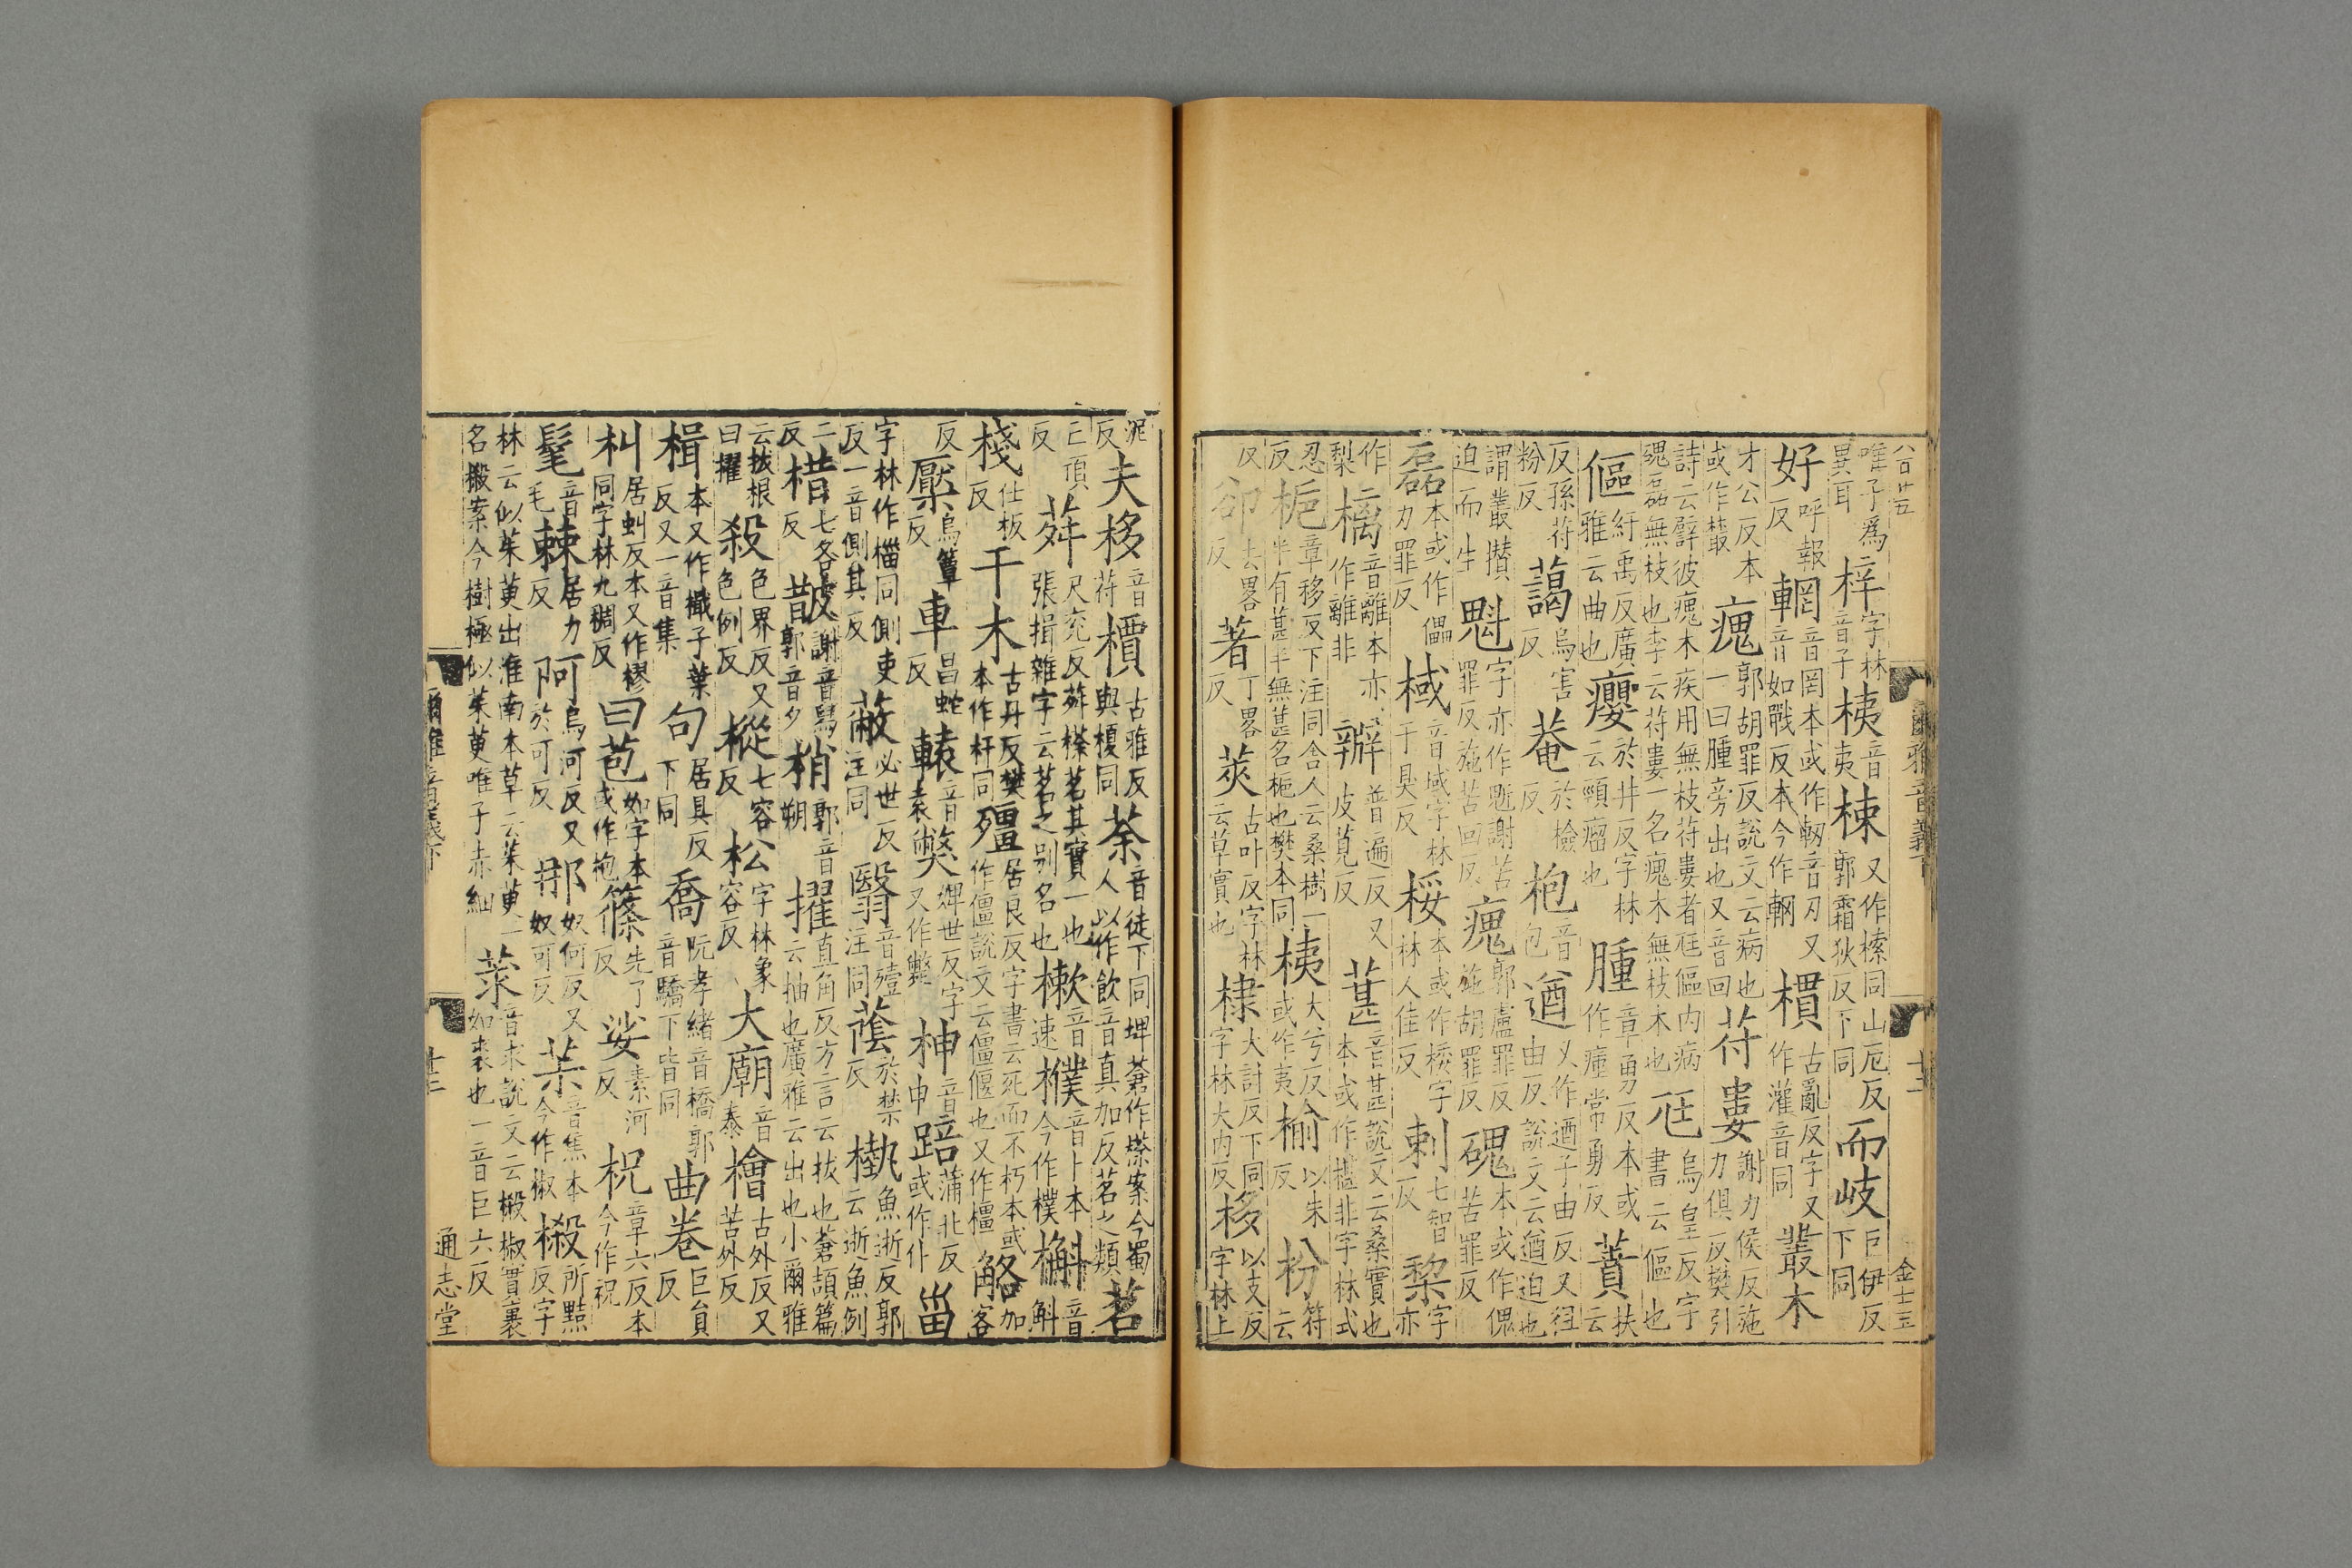 唯子爲異耳 梓字林音子 桋音夷 梀又作㮶同山厄反郭霜狄反下同 而岐巨伊反下同
好呼報反 輞音罔本或作軔音刃又音如戰反本今作輞 樌古亂反字又作灌音同 叢木
才公反本或作藂 瘣郭胡罪反說文云病也一曰腫旁出也又音回 苻婁謝力侯反施力俱反樊引
詩云譬彼瘣木疾用無枝苻婁者尫傴内病磈磊無枝也李云苻婁一名瘣木無枝木也 尫烏皇反字書云傴也
傴紆禹反廣雅云曲也 癭於井反字林云頸瘤也 腫章勇反本或作㾵常勇反 蕡扶云
反孫苻粉反 藹烏害反 菴於檢反 枹音包 遒又作逎子由反又徂由反說文云遒迫也
謂叢攢迫而生 魁字亦作䰟謝苦罪反施苦回反 瘣郭盧罪反施胡罪反 磈本或作傀苦罪反
磊本或作儡力罪反 棫音域字林于臭反 桵本或作㮃字林人佳反 刺七智反 棃字亦
作梨 樆音離本亦作離非 辧普遍反又皮莧反 葚音甚說文云桑實也本或作椹非字林式
忍反 梔章移反下注同舍人云桑樹一半有葚半無葚名梔也樊本同 桋大兮反或作夷 榆以朱反 枌符云
反 卻去略反 著丁略反 莢古叶反字林云草實也 棣大計反下同字林大内反 栘以支反字林上
泥反 夫栘音苻 檟古雅反與榎同 荼音徒下同埤蒼作㯩案今蜀人以作飲音真加反茗之類 茗
亡頂反 荈尺兖反荈㯩茗其實一也張揖雜字云茗之别名也 樕音速 樸音卜本今作樸 槲音斛
棧仕板反 干木古丹反樊本作杆同 殭居良反字書云死而不朽本或作僵說文云僵偃也又作橿 觡加客
反 檿烏簟反 車昌蛇反 轅音袁 獘婢世反字又作斃 神音申 踣蒲北反或作仆 甾
字林作椔同側吏反一音側其反 蔽必世反注同 翳音殪注同 蔭於禁反 槸魚逝反郭云逝魚例
二反 棤七各反 皵謝音舄郭音夕 梢郭音朔 擢直角反方言云拔也蒼頡篇云抽也廣雅云出也小爾雅
云拔根曰擢 殺色界反又色例反 樅七容反 松字林象容反 大廟音泰 檜古外反又苦外反
楫本又作檝子葉反又一音集 句居具反下同 喬阮孝緒音橋郭音驕下皆同 曲卷巨員反
朻居虯反本又作樛同字林九稠反 曰苞如字本或作枹 篠先了反 娑素河反 柷章六反本今作祝
髦音毛 棘居力反 阿烏河反又於可反 那奴何反又奴可反 茮音焦本今作椒 樧所黠反字
林云似茱萸出淮南本草云茱萸一名樧案今樹極似茱萸唯子赤細 莍音求說文云樧椒實裹如裘也一音巨六反
八百廿五
爾雅音義下
十二
金士玉
爾雅音義下
十三
通志堂